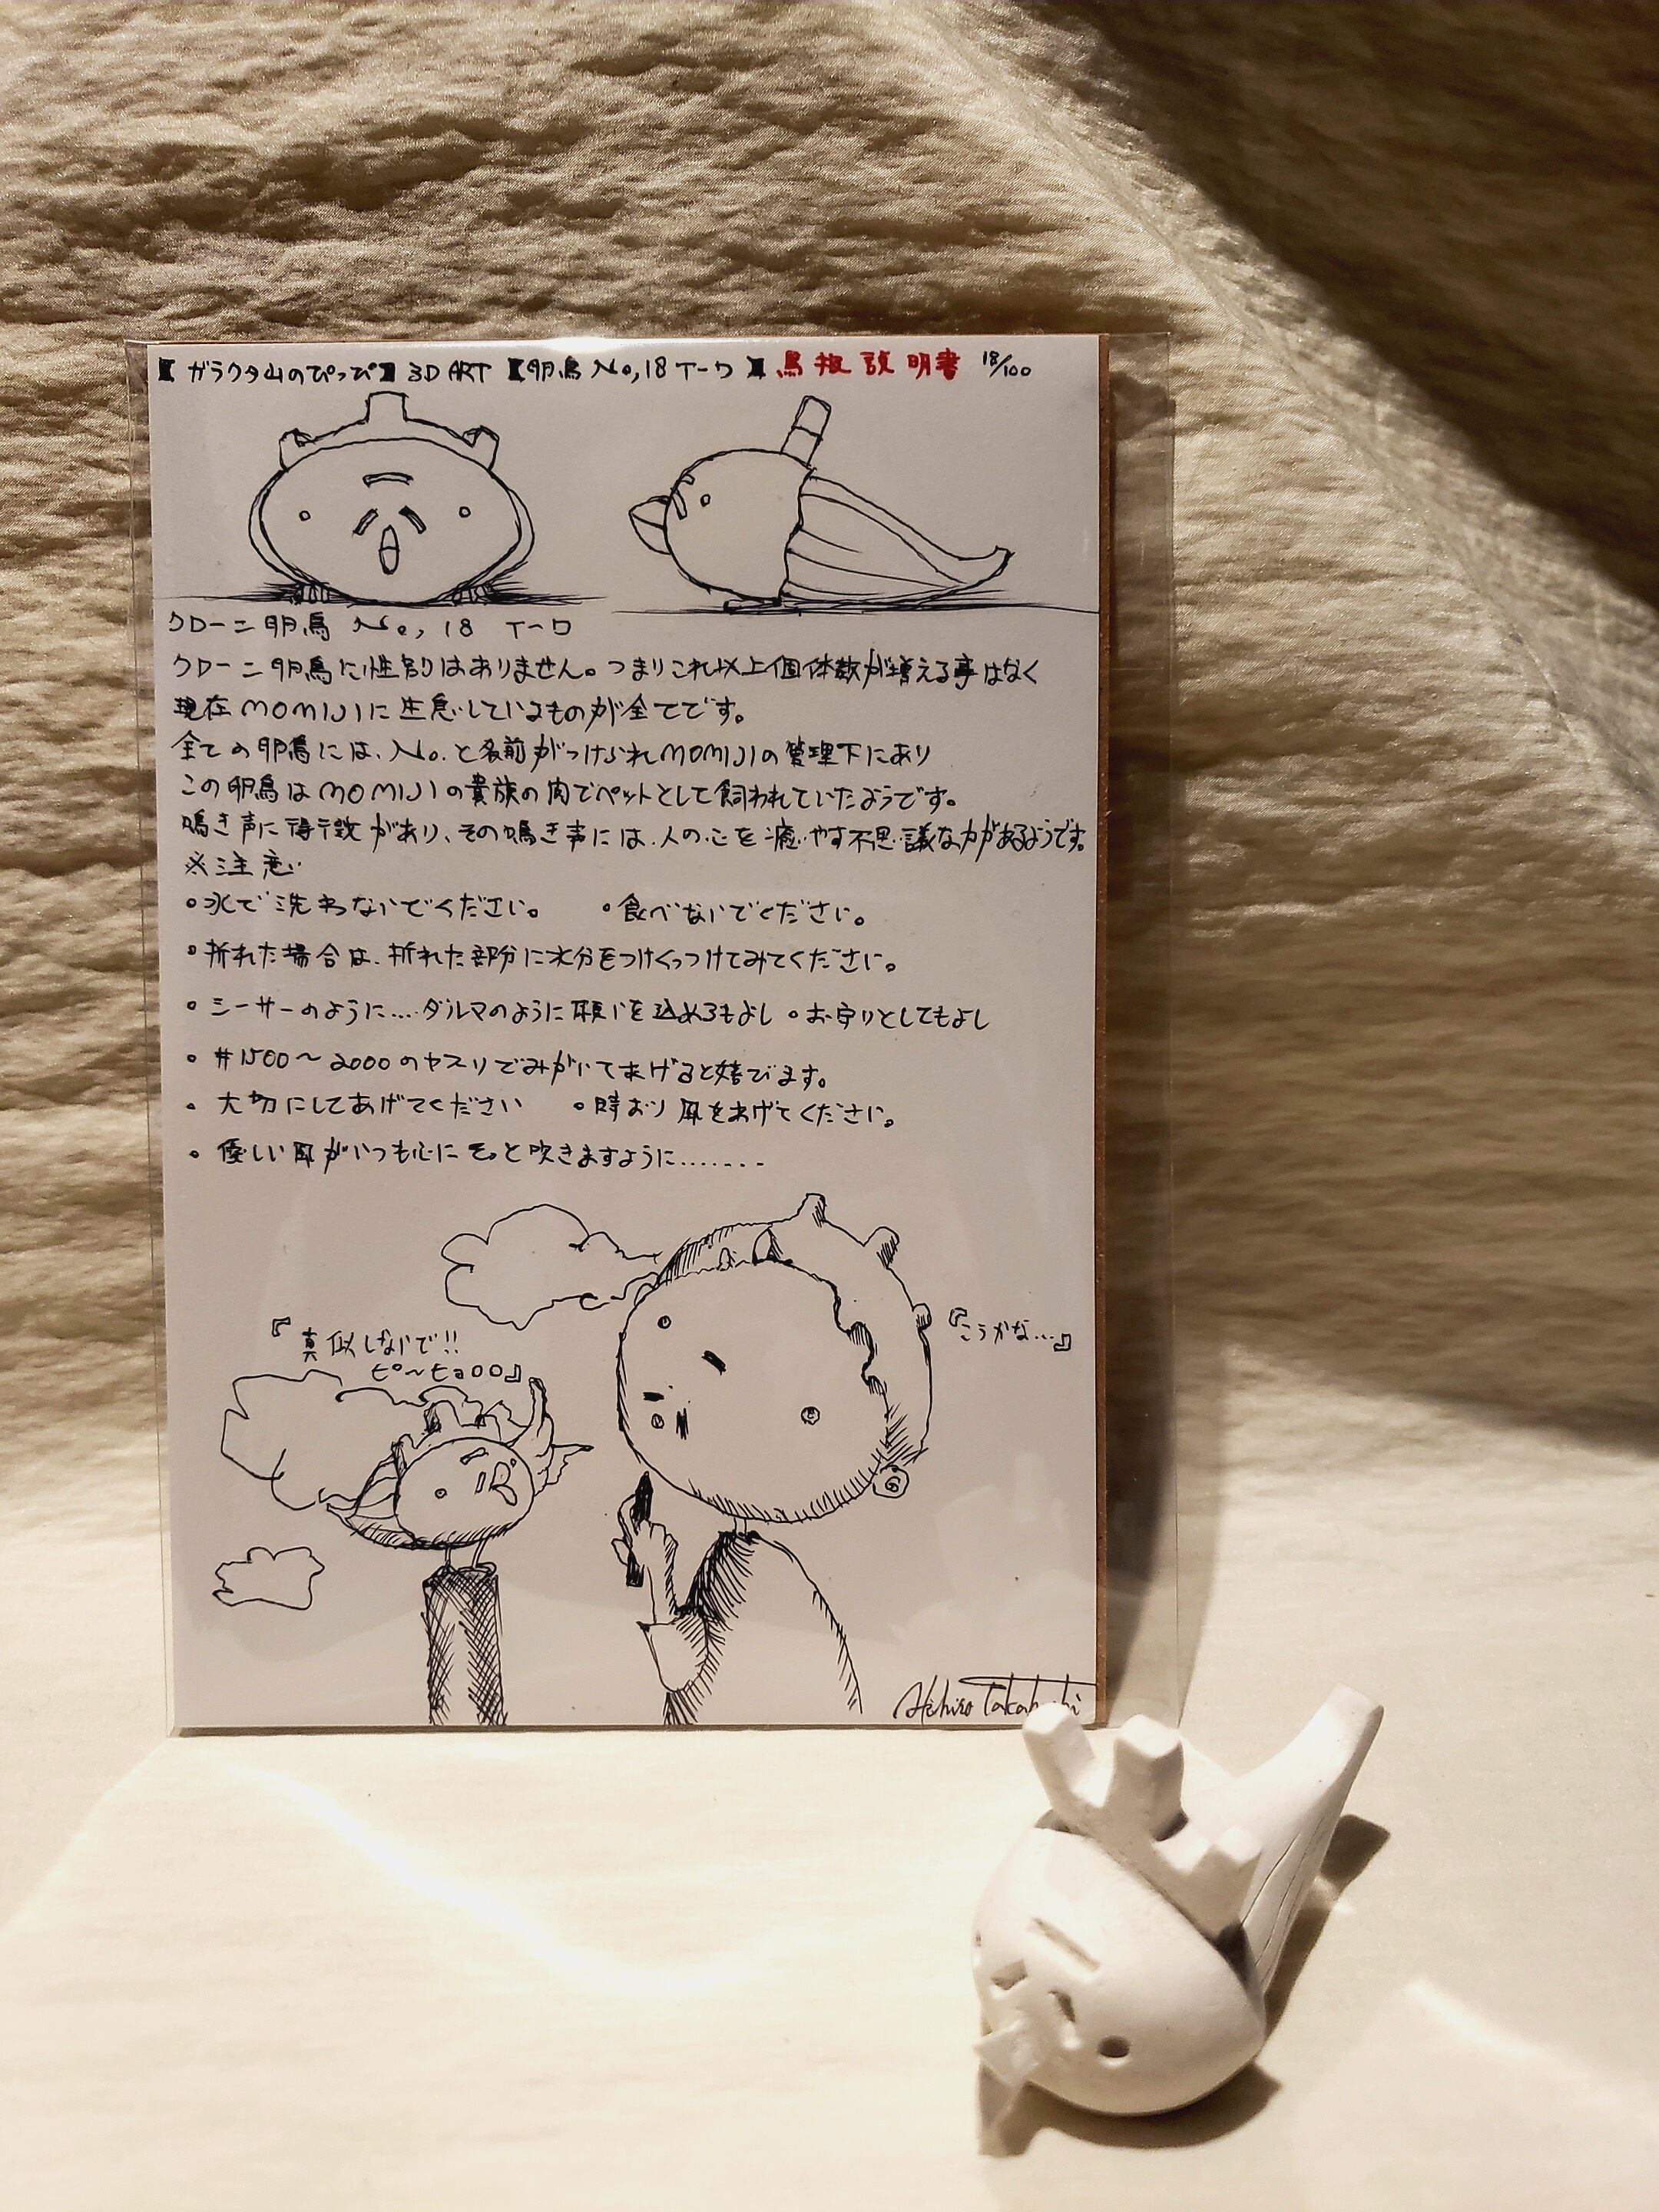 【ガラクタ山のぴっぴ】3D ART【卵鳥 No,18 T-ワ】鳥扱説明書 18/100
クローン卵鳥 No, 18 T-ワ
クローン卵鳥に性別はありません。つまりこれ以上個体数が増える事はなく
現在MOMIJIに生息しているものが全てです。
全ての卵鳥には、No.と名前がつけられMOMIJIの管理下にあり
この卵鳥はMOMIJIの貴族の間でペットとして飼われていたようです。
鳴き声に特徴があり、その鳴き声には、人の心を癒やす不思議な力があるようです。
※注意
・水で洗わないでください。 ・食べないでください。
・折れた場合は、折れた部分に水分をつけくっつけてみてください。
・シーサーのように....ダルマのように願いを込めるもよし ・お守りとしてもよし
・#1500〜2000のヤスリでみがいてあげると喜びます。
・大切にしてあげてください ・時おり風をあげてください。
・優しい風がいつも心にそっと吹きますように.......
『こうかな...』
『真似しないで!!
ピ〜ヒョロロ』
Akihiro Takahashi